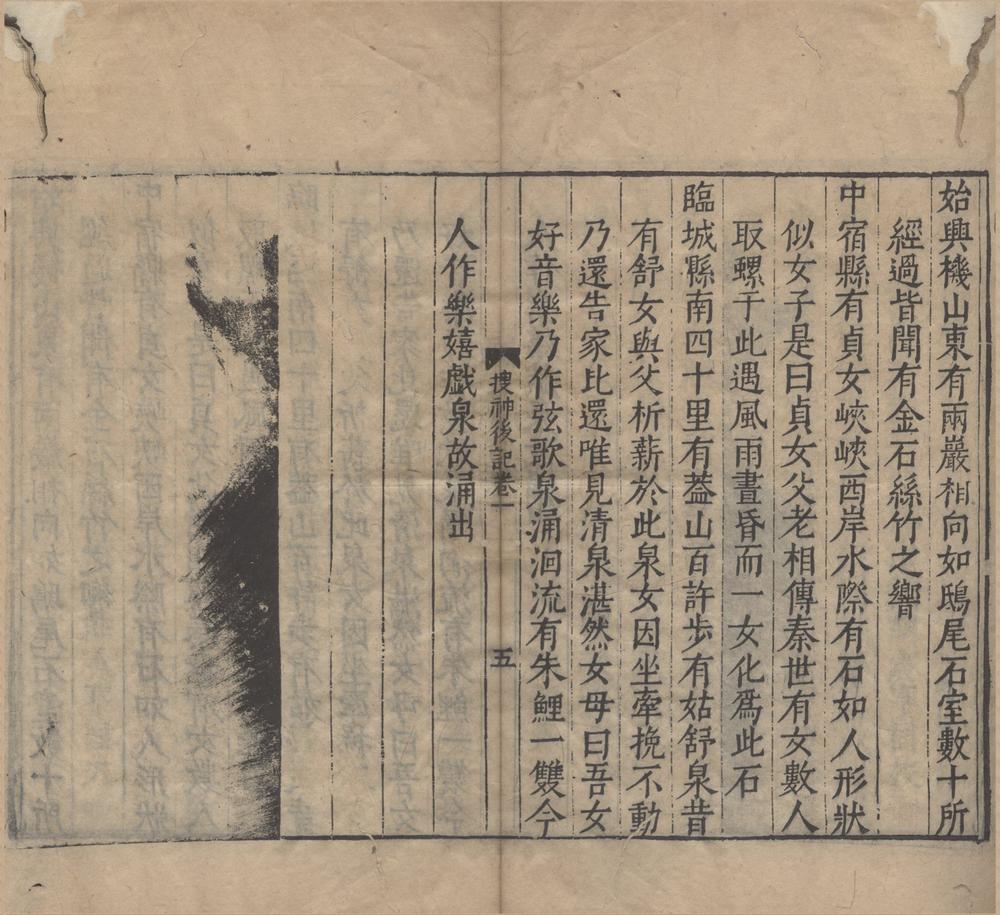 始興機山東有兩巖相向如鴟尾石室數十所
經過皆聞有金石絲竹之響
中宿縣有貞女峽峽西岸水際有石如人形狀
似女子是曰貞女父老相傳秦世有女數人
取螺于此遇風雨晝昏而一女化爲此石
臨城縣南四十里有葢山百許步有姑舒泉昔
有舒女與父析薪於此泉女因坐牽挽不動
乃還告家比還唯見清泉湛然女母曰吾女
好音樂乃作弦歌泉涌洄流有朱鯉一雙今
搜神後記卷一 五
人作樂嬉戲泉故涌出